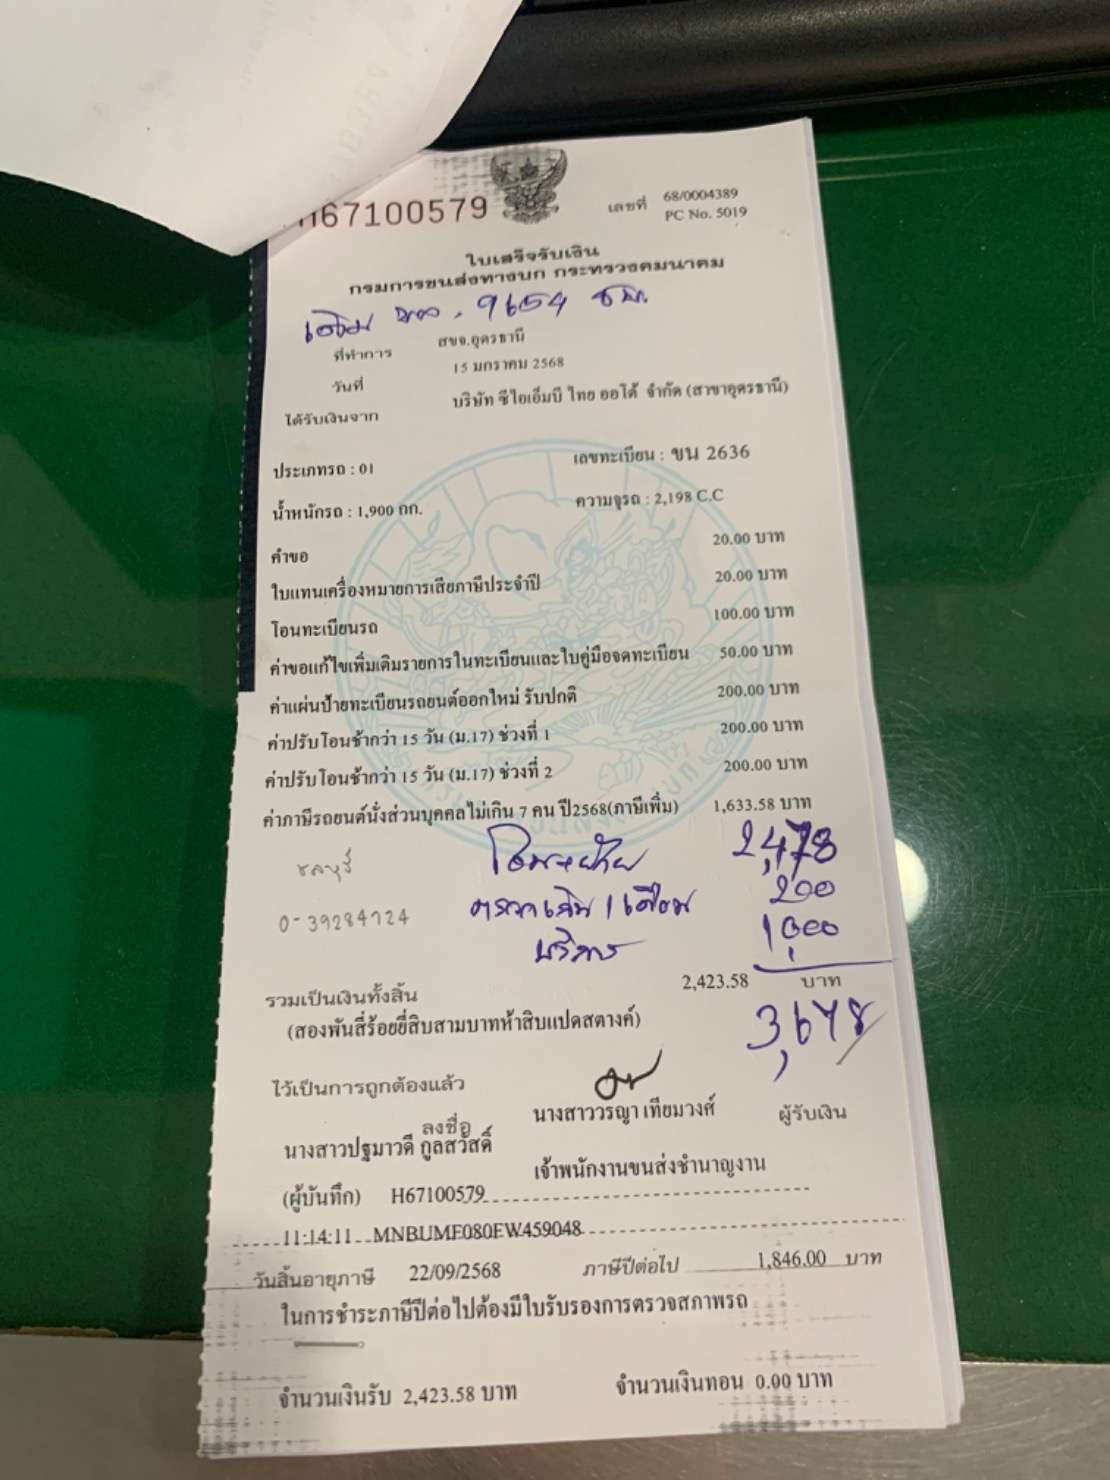 H67100579
เลขที่ 68/0004389
PC No. 5019
ใบเสร็จรับเงิน
กรมการขนส่งทางบก กระทรวงคมนาคม
เดิม 9654 ชบ.
ที่ทำการ สขจ.อุดรธานี
วันที่ 15 มกราคม 2568
ได้รับเงินจาก บริษัท ซีไอเอ็มบี ไทย ออโต้ จำกัด (สาขาอุดรธานี)
ประเภทรถ : 01 เลขทะเบียน : ขน 2636
น้ำหนักรถ : 1,900 กก. ความจุรถ : 2,198 C.C
คำขอ 20.00 บาท
ใบแทนเครื่องหมายการเสียภาษีประจำปี 20.00 บาท
โอนทะเบียนรถ 100.00 บาท
ค่าขอแก้ไขเพิ่มเติมรายการในทะเบียนและใบคู่มือจดทะเบียน 50.00 บาท
ค่าแผ่นป้ายทะเบียนรถยนต์ออกใหม่ รับปกติ 200.00 บาท
ค่าปรับโอนช้ากว่า 15 วัน (ม.17) ช่วงที่ 1 200.00 บาท
ค่าปรับโอนช้ากว่า 15 วัน (ม.17) ช่วงที่ 2 200.00 บาท
ค่าภาษีรถยนต์นั่งส่วนบุคคลไม่เกิน 7 คน ปี2568(ภาษีเพิ่ม) 1,633.58 บาท
ชลบุรี โอน+ย้าย 2,478
0-39284724 200
บริการ 1,000
รวมเป็นเงินทั้งสิ้น 2,423.58 บาท
(สองพันสี่ร้อยยี่สิบสามบาทห้าสิบแปดสตางค์) 3,678
ไว้เป็นการถูกต้องแล้ว
ลงชื่อ นางสาววรญา เทียมวงศ์ ผู้รับเงิน
นางสาวปฐมาวดี กูลสวัสดิ์ เจ้าพนักงานขนส่งชำนาญงาน
(ผู้บันทึก) H67100579
11:14:11 MNBUMF080FW459048
วันสิ้นอายุภาษี 22/09/2568 ภาษีปีต่อไป 1,846.00 บาท
ในการชำระภาษีปีต่อไปต้องมีใบรับรองการตรวจสภาพรถ
จำนวนเงินรับ 2,423.58 บาท จำนวนเงินทอน 0.00 บาท